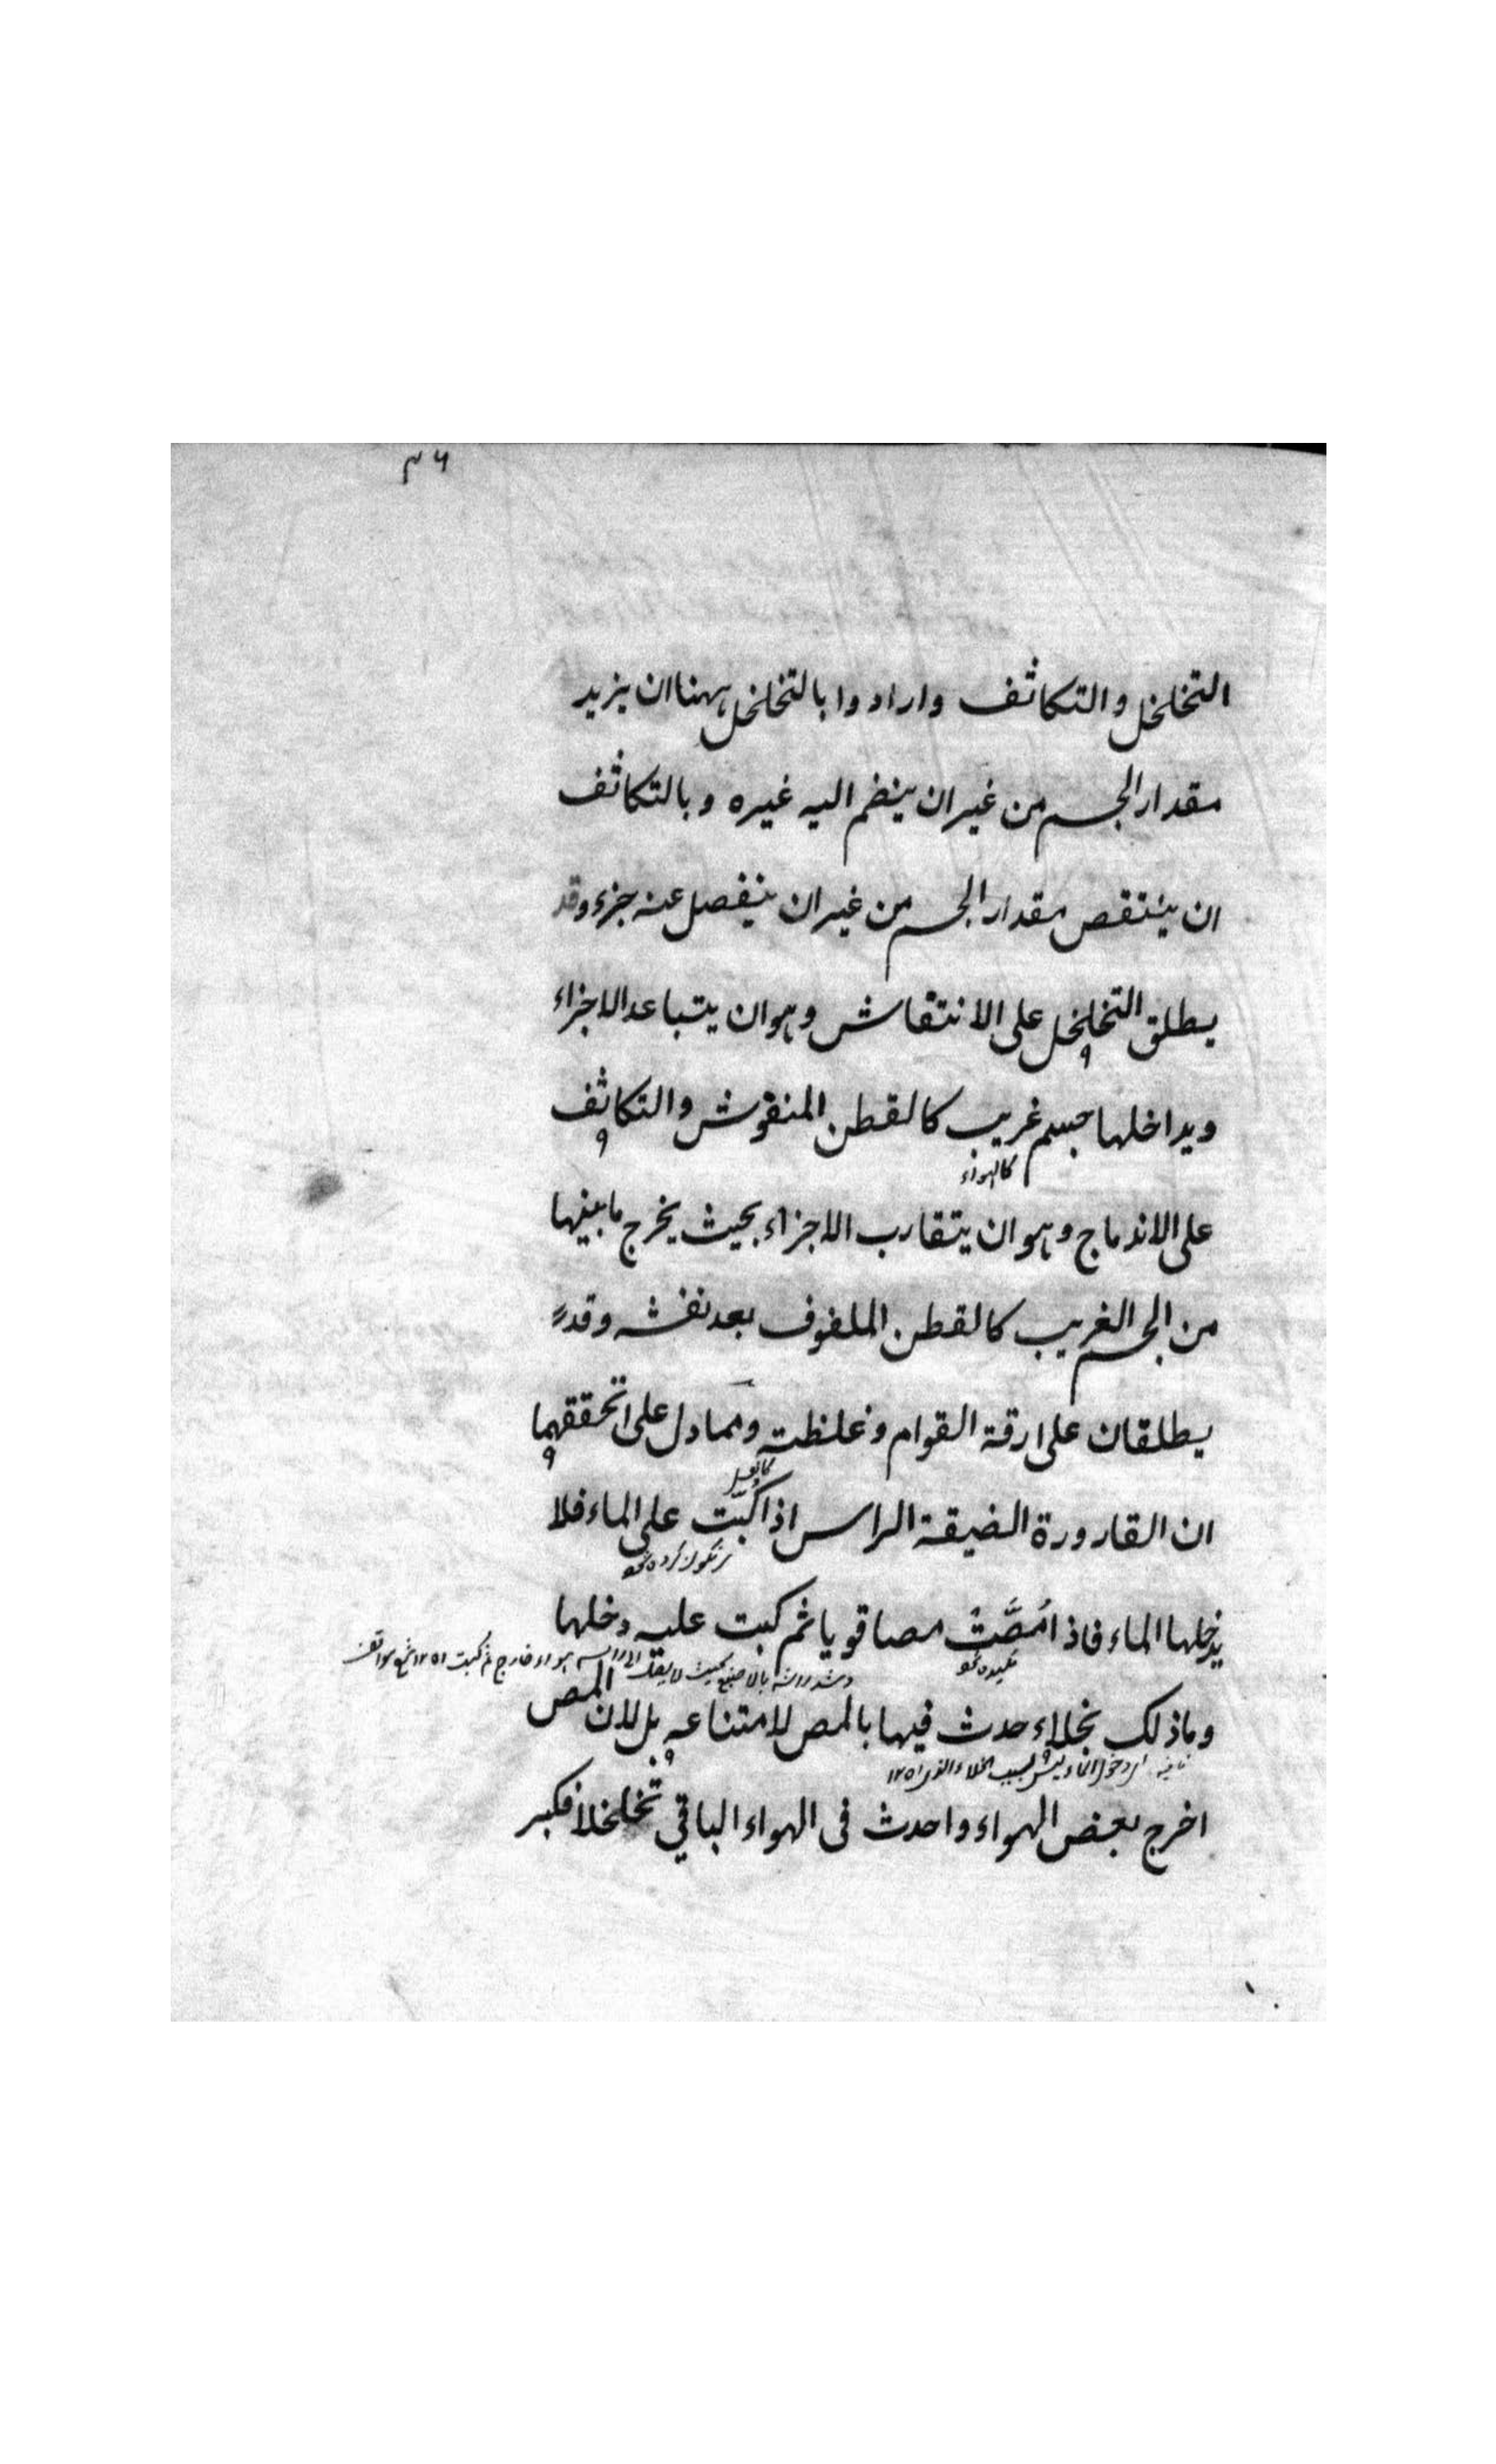 ٤٦
التخلخل والتكاثف وارادوا بالتخلخل ههنا ان يزيد
مقدار الجسم من غير ان ينضم اليه غيره وبالتكاثف
ان ينتقص مقدار الجسم من غير ان ينفصل عنه جزء وقد
يطلق التخلخل على الانتقاش وهو ان يتباعد الاجزاء
ويداخلها جسم غريب كالقطن المنقوش والتكاثف
كالهواء
على الاندماج وهو ان يتقارب الاجزاء بحيث يخرج ما بينها
من الجسم الغريب كالقطن الملفوف بعد نفشه وقد
يطلقان على رقة القوام وغلظته ومما دل على تحققهما
ان القارورة الضيقة الراس اذا كبّت على الماء فلا
يدخلها الماء فاذا مُصَّتْ مصا قويا ثم كبت عليه دخلها
وما ذلك بخلاء حدث فيها بالمص لامتناعه بل لان المص
اخرج بعض الهواء واحدث فى الهواء الباقي تخلخلا فكبر